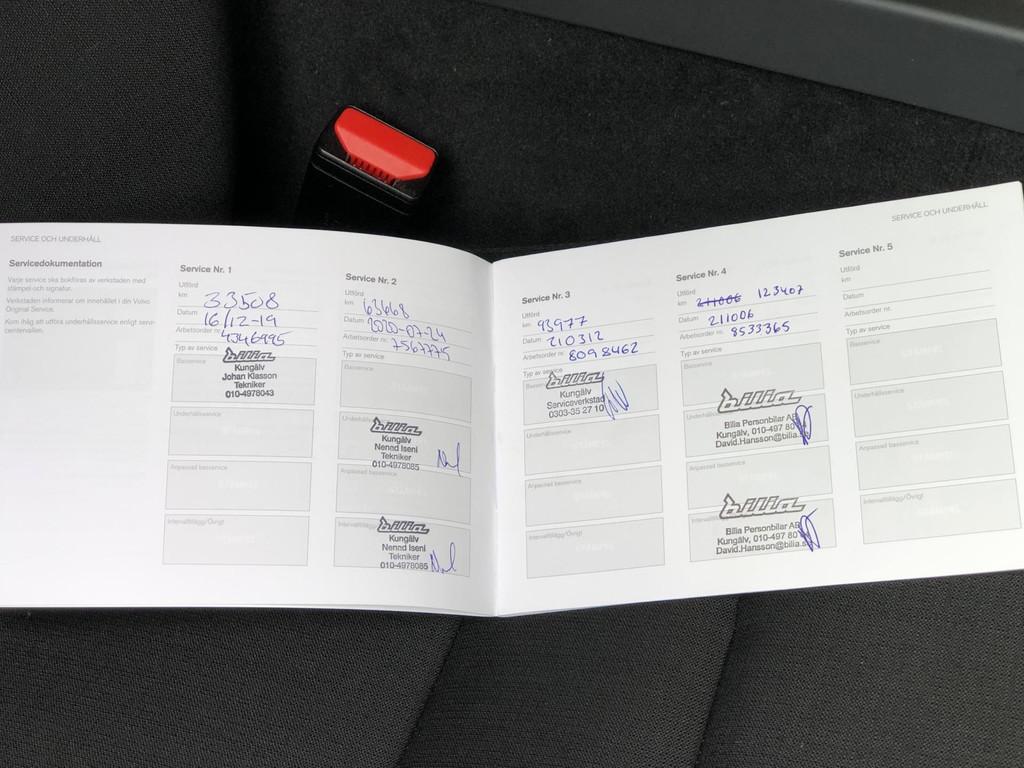 SERVICE OCH UNDERHÅLL
Servicedokumentation
Varje service ska bokföras av verkstaden med
stämpel och signatur.
Verkstaden informerar om innehållet i din Volvo
Original Service.
Kom ihåg att utföra underhållsservice enligt serv-
centervallen.
Service Nr. 1
Utförd
km 33508
Datum 16/12-19
Arbetsorder nr.
Typ av service
Basservice
bilia
Kungälv
Johan Klasson
Tekniker
010-4978043
Underhållsservice
Anpassad basservice
Intervalltillägg/Övrigt
Service Nr. 2
Utförd
km 63668
Datum 2020-07-24
Arbetsorder nr. 7567775
Typ av service
Basservice
Underhållsservice
bilia
Kungälv
Nennd Iseni
Tekniker
010-4978085
Anpassad basservice
Intervalltillägg/Övrigt
bilia
Kungälv
Nennd Iseni
Tekniker
010-4978085
SERVICE OCH UNDERHÅLL
Service Nr. 3
Utförd
km 93977
Datum 210312
Arbetsorder nr. 8098462
Typ av service
Basservice
bilia
Kungälv
Serviceverkstad
0303-35 27 10
Underhållsservice
Anpassad basservice
Intervalltillägg/Övrigt
Service Nr. 4
Utförd
km 211006 123407
Datum 211006
Arbetsorder nr. 8533365
Typ av service
Basservice
bilia
Bilia Personbilar AB
Kungälv, 010-497 80
David.Hansson@bilia.se
Anpassad basservice
bilia
Bilia Personbilar AB
Kungälv, 010-497 80
David.Hansson@bilia.se
Service Nr. 5
Utförd
km
Datum
Arbetsorder nr.
Typ av service
Basservice
Underhållsservice
Anpassad basservice
Intervalltillägg/Övrigt